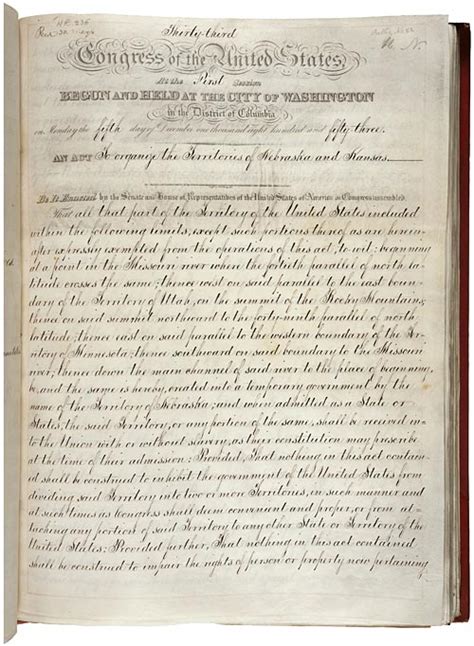 H.R. 236
Thirty-third
Congress of the United States,
At the First Session
BEGUN AND HELD AT THE CITY OF WASHINGTON
in the District of Columbia
on Monday the fifth day of December one thousand eight hundred and fifty-three.
AN ACT To organize the Territories of Nebraska and Kansas.
Be It Enacted by the Senate and House of Representatives of the United States of America in Congress assembled,
That all that part of the Territory of the United States included
within the following limits, except such portions thereof as are herein-
after expressly exempted from the operations of this act, to wit: beginning
at a point in the Missouri river where the fortieth parallel of north la-
titude crosses the same; thence west on said parallel to the east boun-
dary of the Territory of Utah, on the summit of the Rocky Mountains;
thence on said summit northward to the forty-ninth parallel of north
latitude; thence east on said parallel to the western boundary of the Ter-
ritory of Minnesota; thence southward on said boundary to the Missouri
river; thence down the main channel of said river to the place of beginning,
be, and the same is hereby, created into a temporary government by the
name of the Territory of Nebraska; and when admitted as a State or
States, the said Territory, or any portion of the same, shall be received in-
to the Union with or without slavery, as their constitution may prescribe
at the time of their admission: Provided, That nothing in this act contain-
ed shall be construed to inhibit the government of the United States from
dividing said Territory into two or more Territories, in such manner and
at such times as Congress shall deem convenient and proper, or from at-
taching any portion of said Territory to any other State or Territory of the
United States: Provided further, That nothing in this act contained
shall be construed to impair the rights of person or property now pertaining